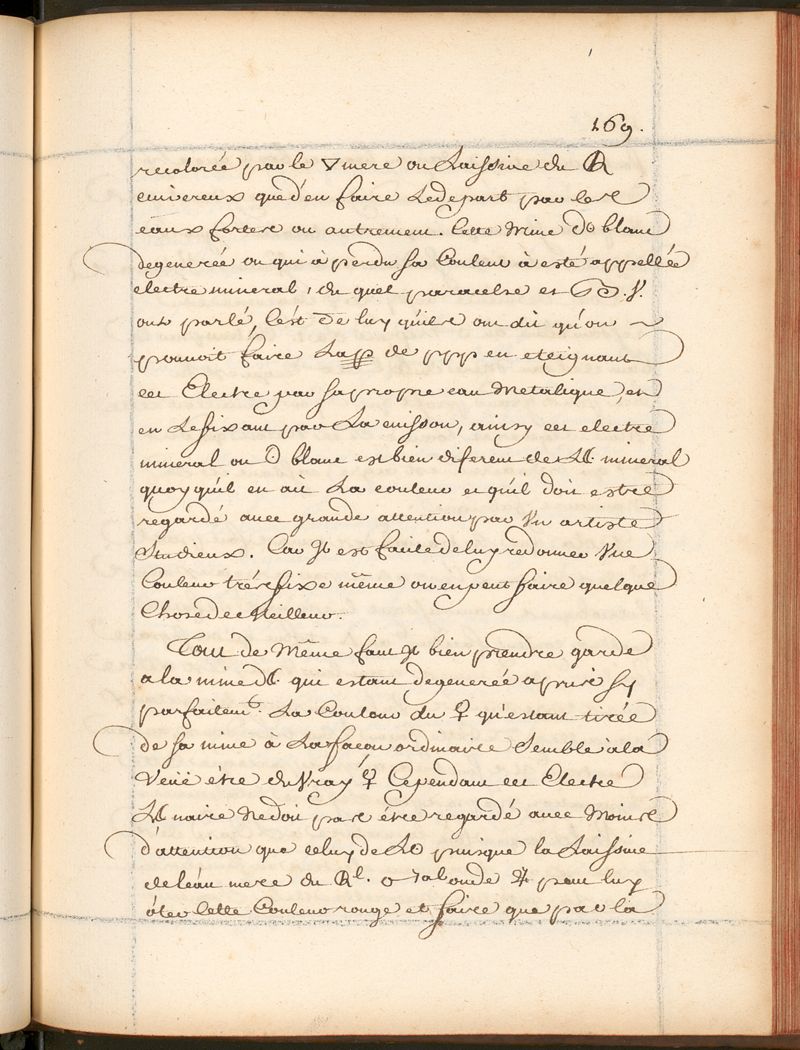 169.
recolorée par le ▽ mere ou Laissive du
cuivereux que d'en faire Le depart par les
eaux fortes ou autrement. Cette Mine d☉ blanc
degenerée ou qui à perdu sa Couleur à esté appellée
electre mineral, du quel paracelse et B. V.
ont parlé, C'est de luy quils ont dit qu'on
pouvoit faire La de ppp en eteignant
cet Electre par sa propre eau Metalique, et
en Le fixant par La cuisson, ainsy cet electre
mineral ou ☉ blanc est bien diferent de L☾ mineral
quoy qu'il en ait La couleur et quil doit estre
regardé avec grande attention par Vn artiste
Studieux. Car Jl est facile de luy redonner Vne
Couleur trés fixe même on en peut faire quelque
Chose de Meilleur.
Tout de Même faut Jl bien prendre garde
a la mine d☾ qui estant degenerée a pris sy
parfaitemt. La Couleur du ♀ qu'estant tirée
de sa mine à La façon ordinaire Semble à la
Veüe étre du Vray ♀ Cependant cet Electre
L☾ naire Ne doit pas étre regardé avec Moins
d'attention que celuy de L☉ puisque la Laissive
de leau mere du peut luy
óter Cette Couleur rouge et faire que par la